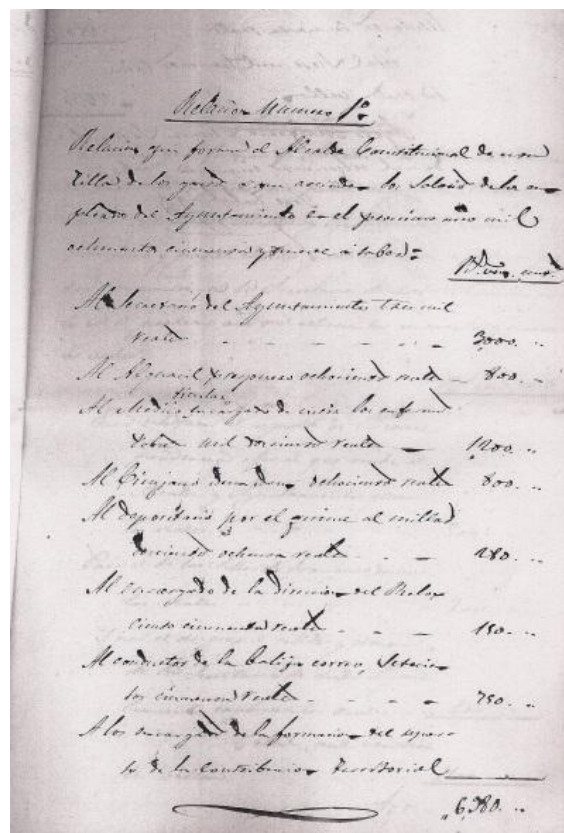 Relacion Numero 1º
Relacion que forma el Alcalde Constitucional de esta
Villa de los gastos a que asciende los Salarios de los em
pleados del Ayuntamiento en el proximo año mil
ochocientos cincuenta y nueve a saber=
Rs. von. cent.
Al Secretario del Ayuntamiento tres mil
reales - - - - - 3000. ..
Al Alguacil y ochocientos reales - 800. ..
titular
Al Medico encargado de curar los enfermos
mil doscientos reales - - 1200. ..
Al Cirujano idem idem ochocientos reales 800. ..
Al depositario por el quince al millar
doscientos ochenta reales - - - 280. ..
Al encargado de la direccion del Relox
ciento cincuenta reales - - - 150. ..
Al conductor de la Balija correo, Setecien
tos cincuenta reales - - - - 750. ..
A los encargados de la formacion del repar
to de la Contribucion Territorial
6,980. ..